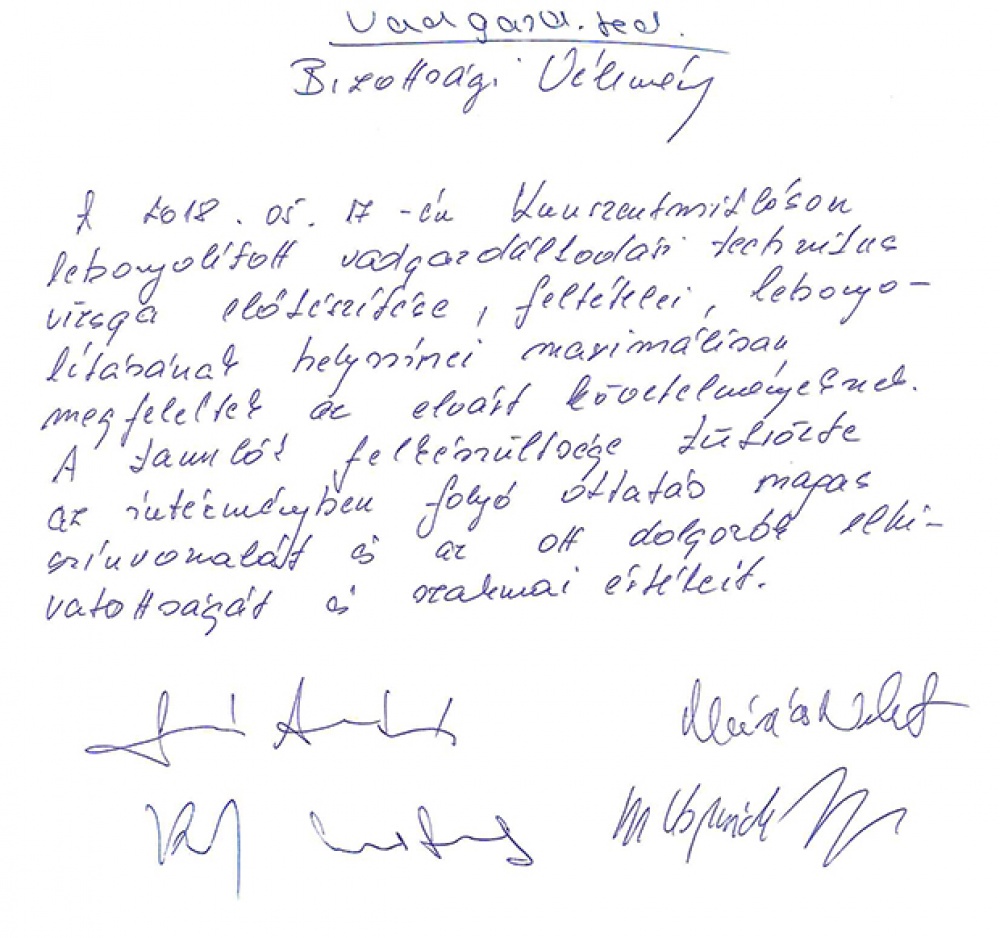 Vadgazd. tech.
Bizottsági Vélemény
A 2018. 05. 17-én Kunszentmiklóson
lebonyolított vadgazdálkodási technikus
vizsga előkészítése, feltételei, lebonyo-
lításának helyszínei maximálisan
megfeleltek az elvárt követelményeknek.
A tanulók felkészültsége tükrözte
az intézményben folyó oktatás magas
színvonalát és az ott dolgozók elhi-
vatottságát és szakmai értékeit.